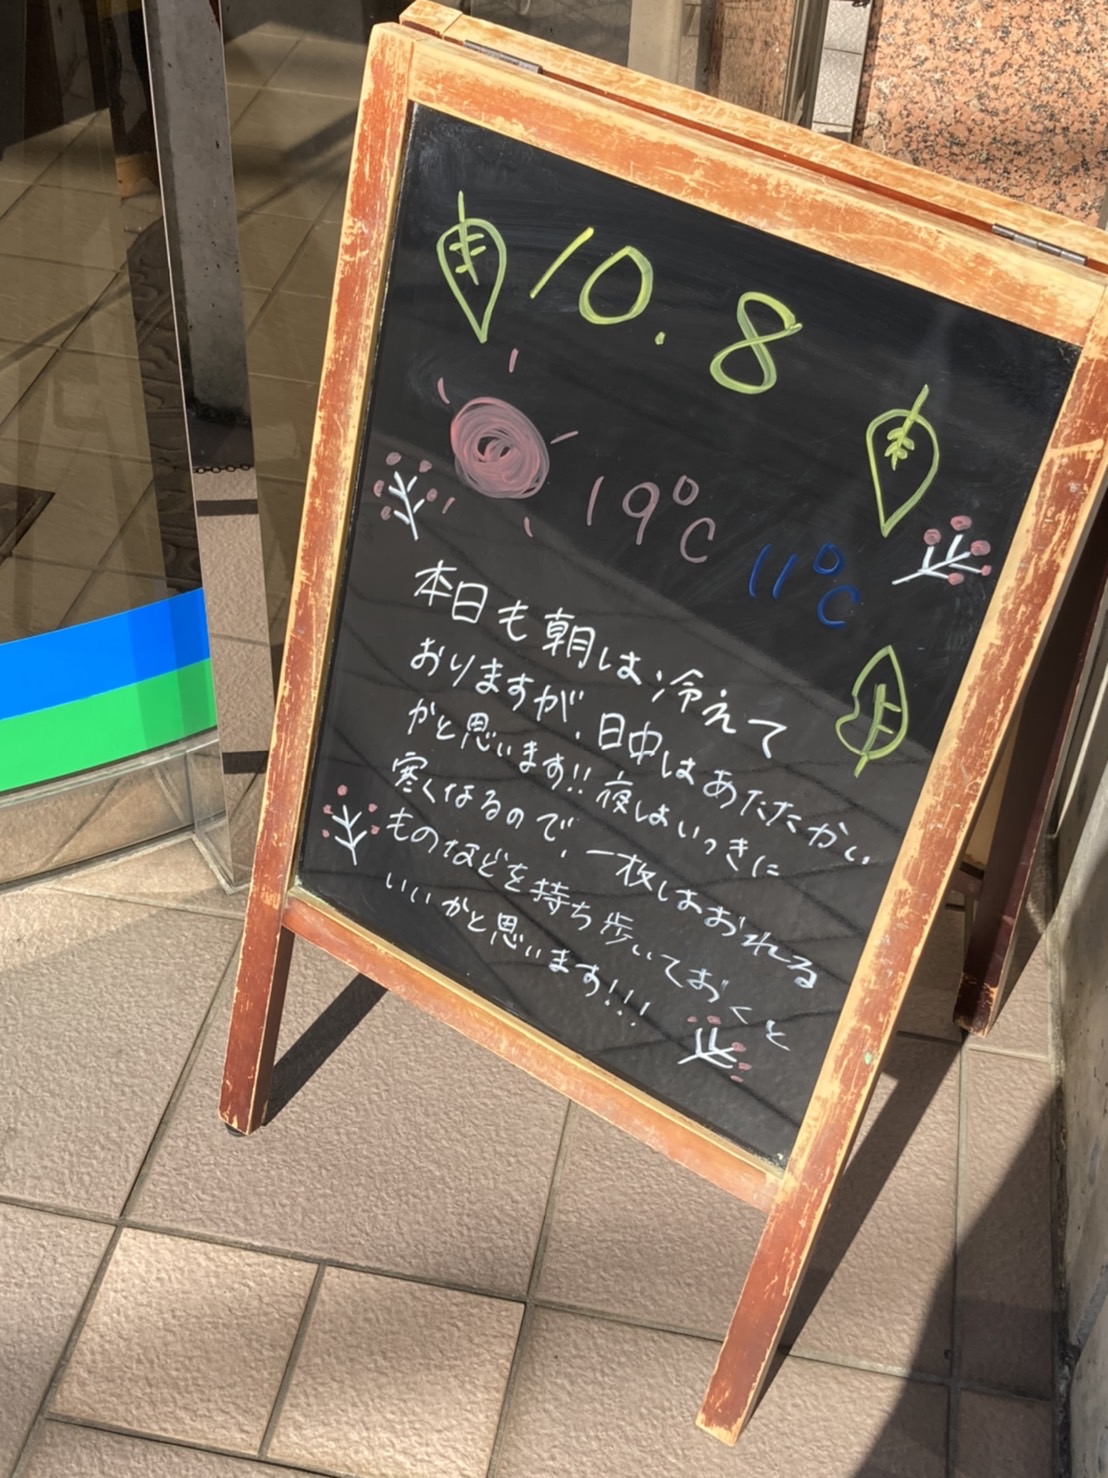 10.8
19°C 11°C
本日も朝は冷えて
おりますが、日中はあたたかい
かと思います!! 夜はいっきに
寒くなるので、一枚はおれる
ものなどを持ち歩いておくと
いいかと思います!!!